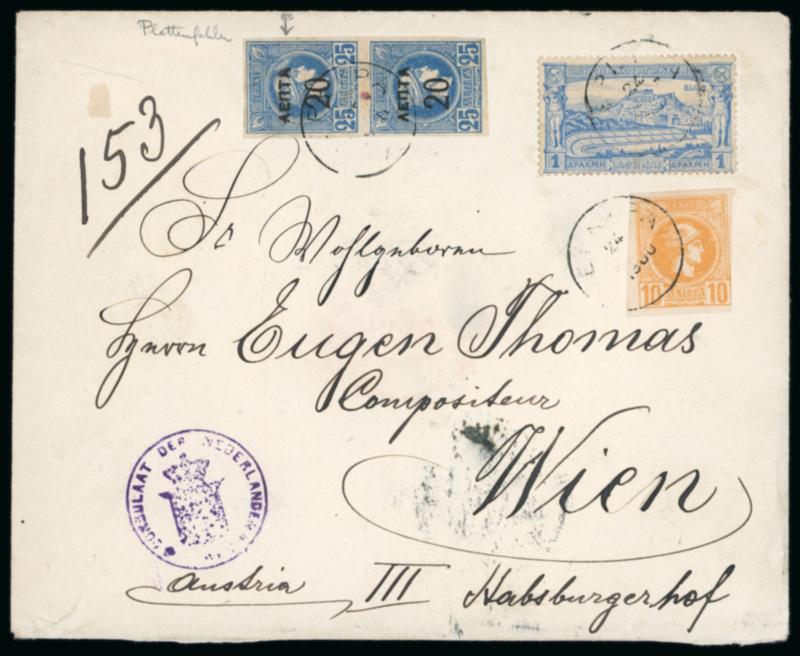 Plattenfehler
25 ΛΕΠΤΑ 20 25
25 ΛΕΠΤΑ 20 25
1 ΔΡΑΧΜΗ ΔΡΑΧΜΗ 1
24
153
Sr Wohlgeboren
24
1900
10 ΛΕΠΤΑ 10
Herrn Eugen Thomas
Compositeur
Wien
CONSULAAT DER NEDERLANDEN
Austria III Habsburgerhof